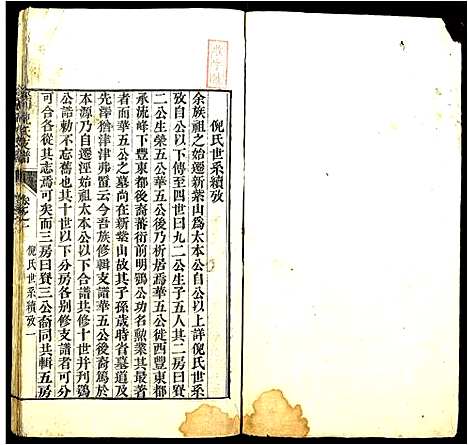 倪氏世系續攷
余族祖之始遷新紫山為太本公自公以上詳倪氏世系
攷自公以下傳至四世曰九二公生子五人其二房曰賚
二公生榮五公華五公後乃析居焉華五公徙西豐東都
承流峰下豐東都後裔蕃衍前明鴞公功名勲業其最
著者而華五公之墓尚在新紫山故其子孫歲時省墓道及
先澤猶津津弗置云今吾族修輯支譜華五公後裔篤於
本源乃自遷涇始祖太本公合譜共修十世并刊鴞
公誥勅不忘舊也其十世以下分房各別修支譜者可分
可合各從其志焉可矣而三房曰賚三公裔同共輯五房
卷之一
倪氏世系續攷一